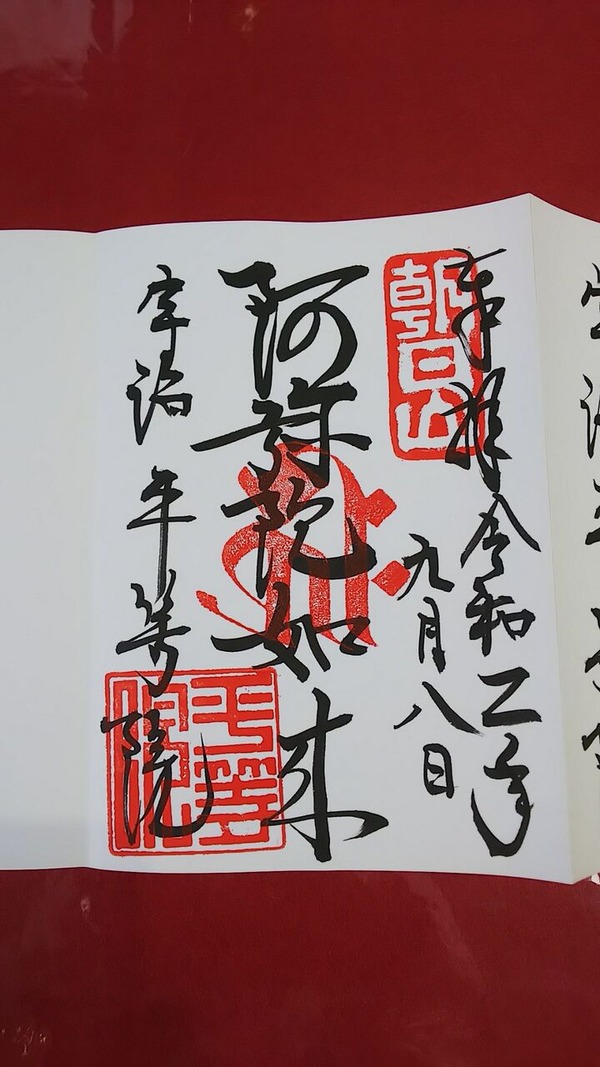 奉拝 令和二年
九月八日
朝日山
阿弥陀如来
宇治 平等院
平等院
宇治平等院